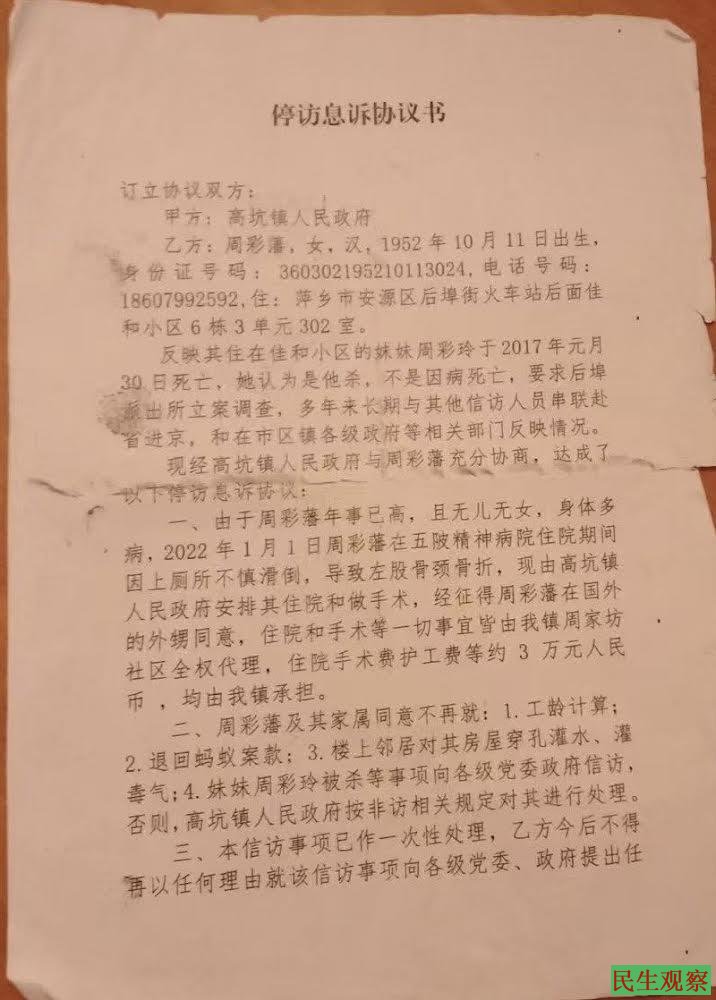 停访息诉协议书
订立协议双方：
甲方：高坑镇人民政府
乙方：周彩藩，女，汉，1952年10月11日出生，
身份证号码：360302195210113024,电话号码：
18607992592,住：萍乡市安源区后埠街火车站后面佳
和小区6栋3单元302室。
反映其住在佳和小区的妹妹周彩玲于2017年元月
30日死亡，她认为是他杀，不是因病死亡，要求后埠
派出所立案调查，多年来长期与其他信访人员串联赴
省进京，和在市区镇各级政府等相关部门反映情况。
现经高坑镇人民政府与周彩藩充分协商，达成了
以下停访息诉协议：
一、由于周彩藩年事已高，且无儿无女，身体多
病，2022年1月1日周彩藩在五陂精神病院住院期间
因上厕所不慎滑倒，导致左股骨颈骨折，现由高坑镇
人民政府安排其住院和做手术，经征得周彩藩在国外
的外甥同意，住院和手术等一切事宜皆由我镇周家坊
社区全权代理，住院手术费护工费等约 3 万元人民
币 ，均由我镇承担。
二、周彩藩及其家属同意不再就：1.工龄计算；
2.退回蚂蚁案款；3.楼上邻居对其房屋穿孔灌水、灌
毒气；4.妹妹周彩玲被杀等事项向各级党委政府信访，
否则，高坑镇人民政府按非访相关规定对其进行处理。
三、本信访事项已作一次性处理，乙方今后不得
再以任何理由就该信访事项向各级党委、政府提出任
民生观察